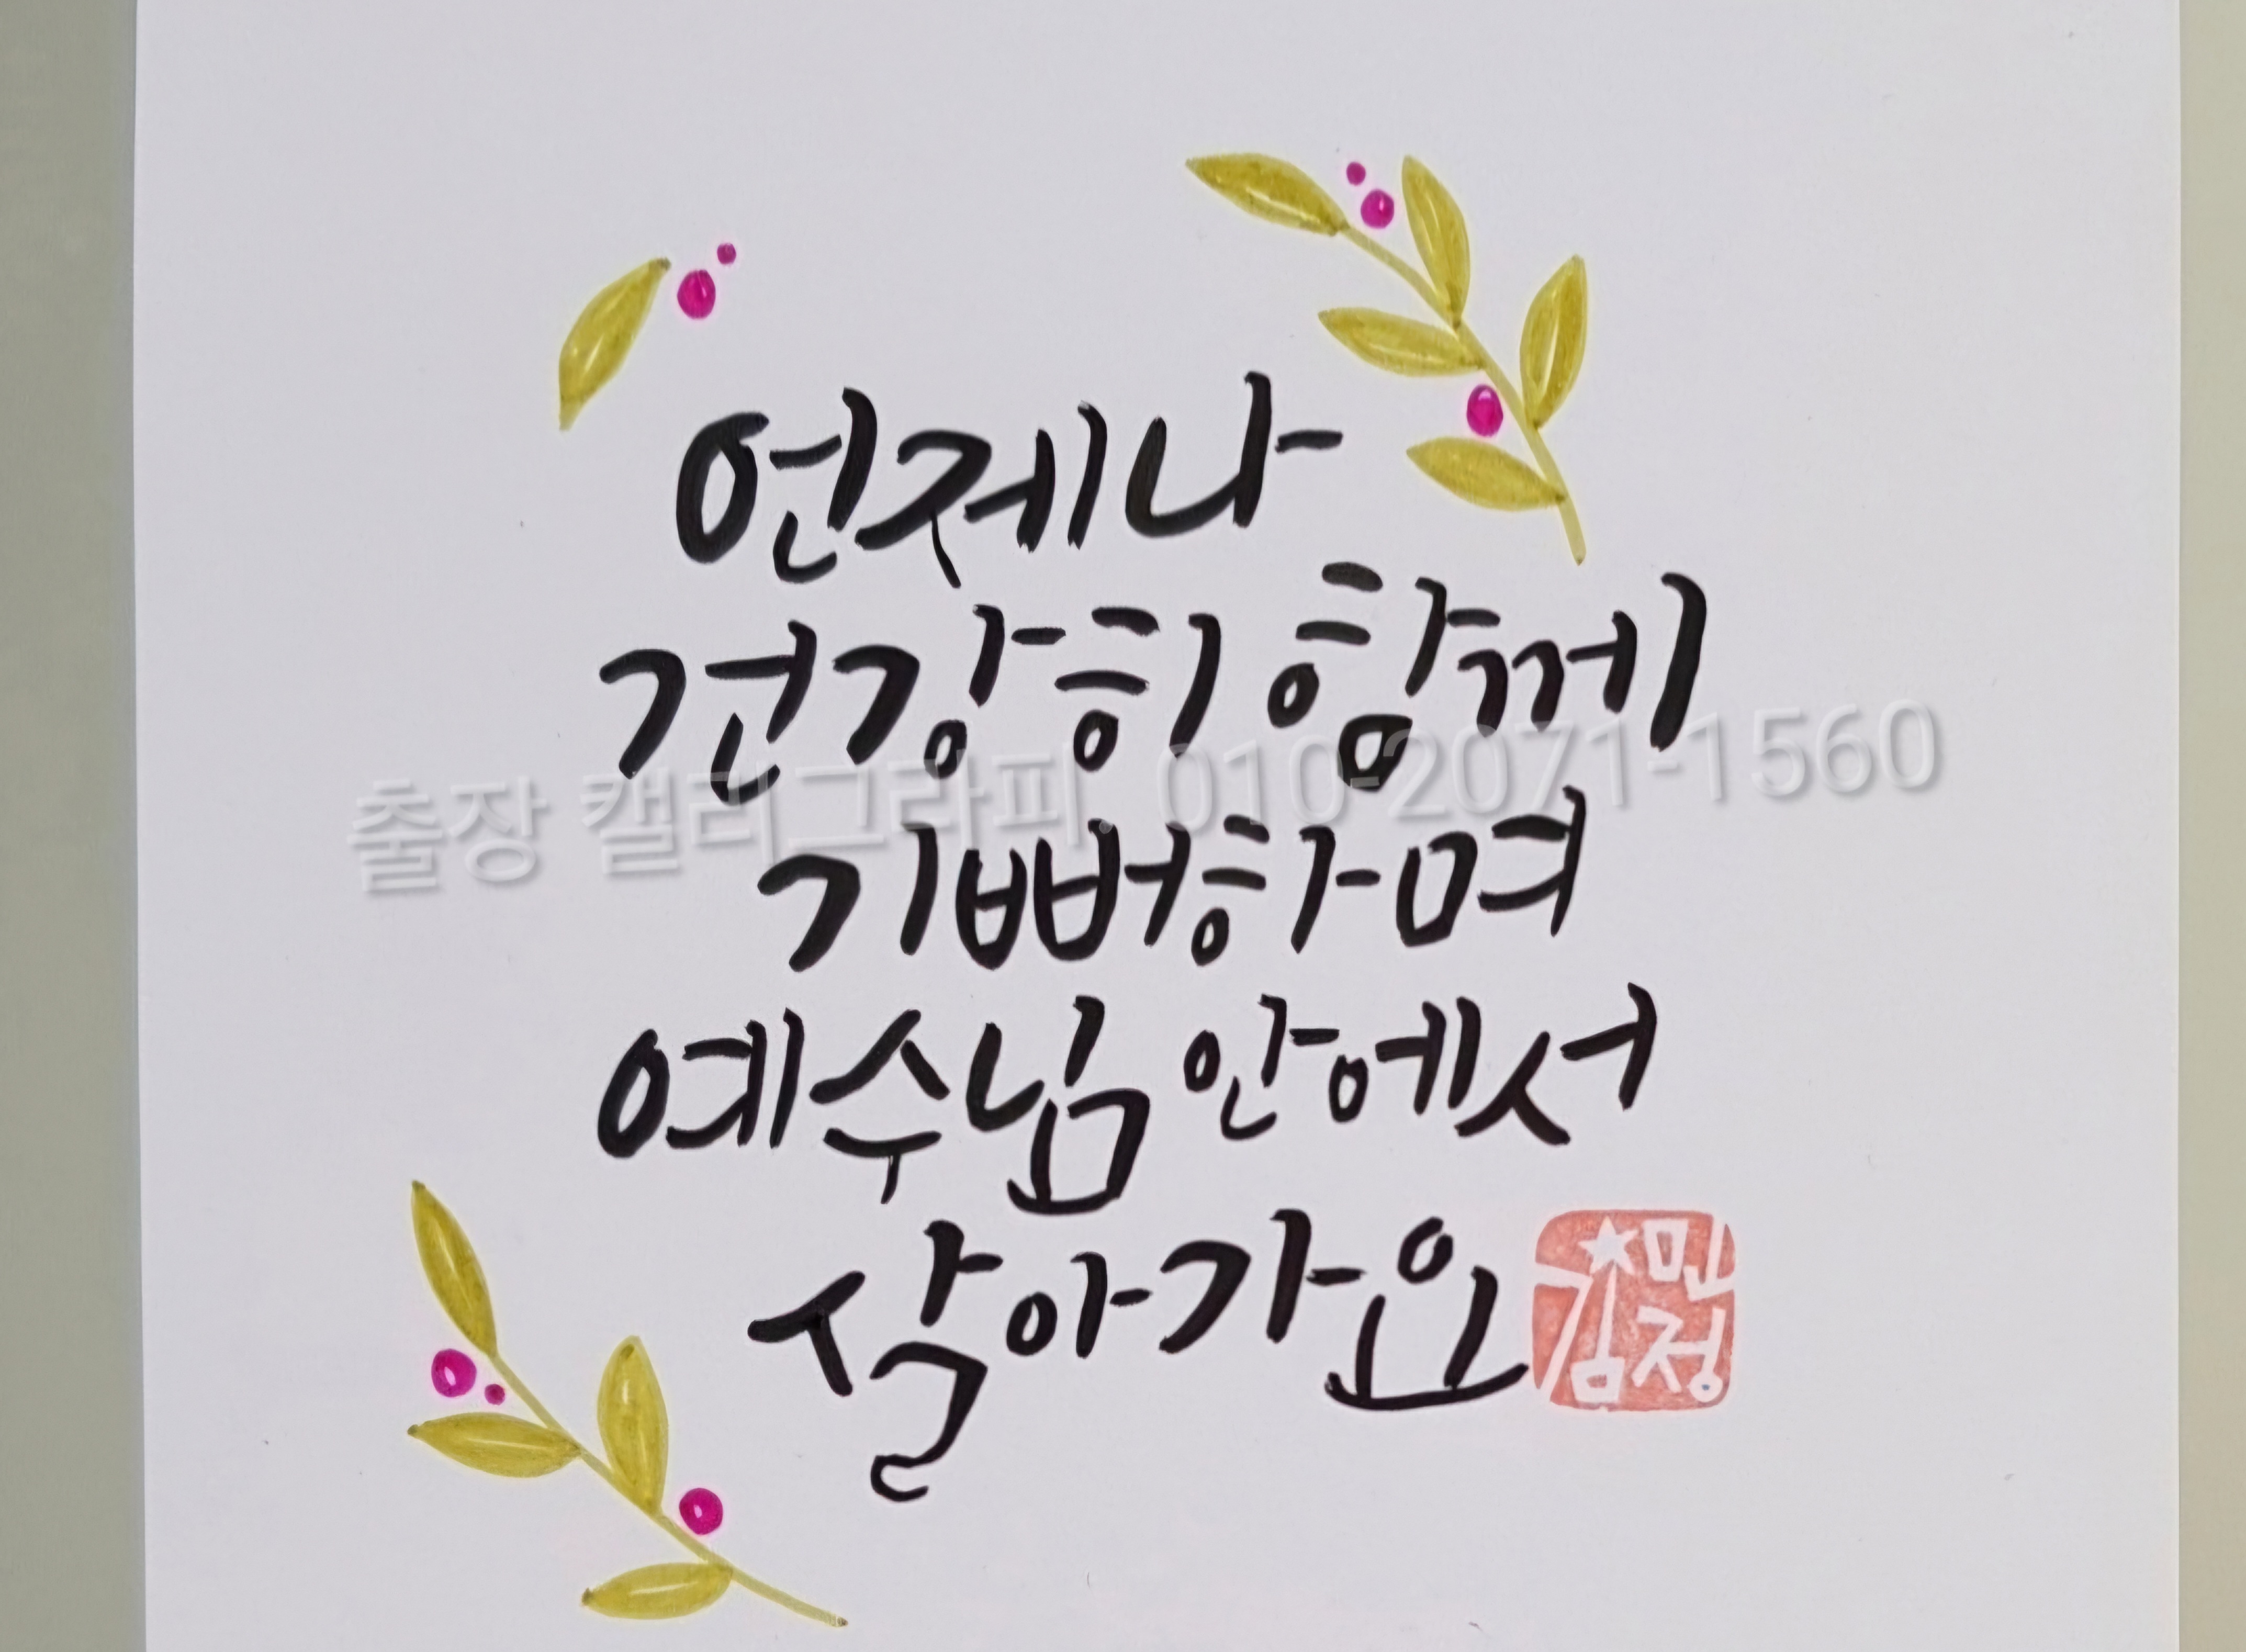 언제나
건강히 함께
기뻐하며
출장 캘리그라피. 010-2071-1560
예수님 안에서
살아가요
민
김정